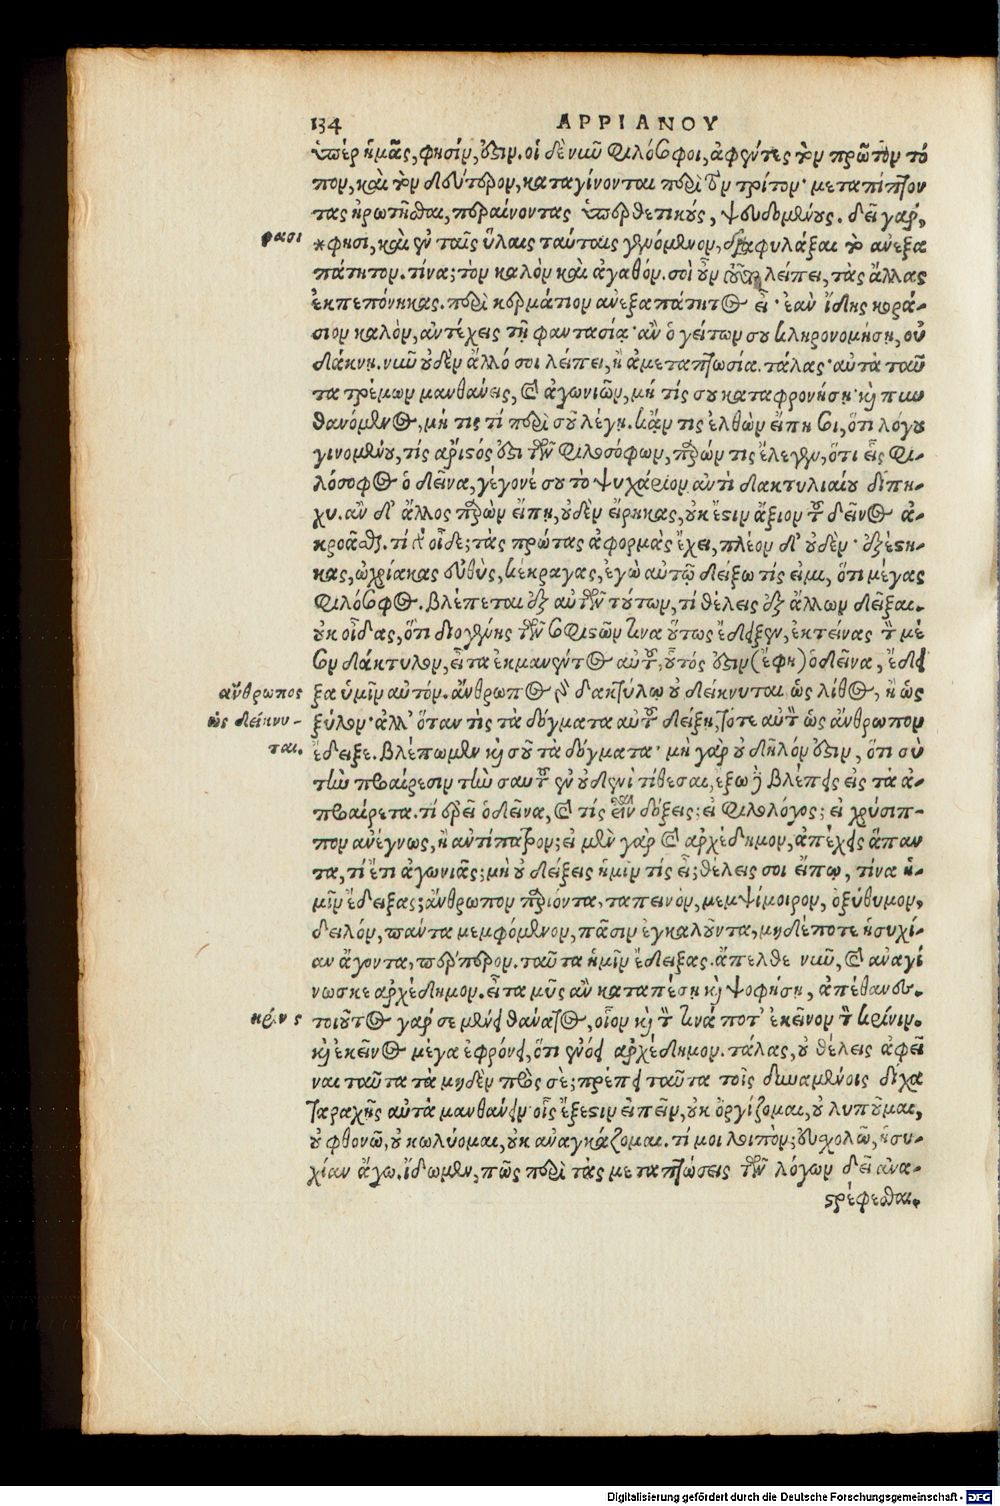 134 ΑΡΡΙΑΝΟΥ
ὑπὲρ ἡμᾶς, φησὶν, ὅςιν. οἱ δὲ νῦν φιλόσοφοι, ἀφέντες τὸν πρῶτον τό
πον, καὶ τὸν δεύτερον, καταγίνονται περὶ τὸν τρίτον· μεταπίπτον
τας ἠρωτῆσθαι, περαίνοντας ὑποθετικοὺς, ψευδομένους. δεῖ γαρ,
φασι
*φησι, καὶ ἐν ταῖς ὕλαις ταύταις γενόμενον, διαφυλάξαι τὸ ἀνεξα
πάτητον. τίνα; τὸν καλὸν καὶ ἀγαθόν. σοὶ οὖν λείπει, τὰς ἄλλας
ἐκπεπόνηκας. περὶ κερμάτιον ἀνεξαπάτητος εἶ· ἐαν ἴδῃς κορά-
σιον καλὸν, ἀντέχεις τῇ φαντασίᾳ· ἂν ὁ γείτων σου κληρονομήσῃ, οὐ
δάκνῃ. νῦν οὐδὲν ἄλλό σοι λέιπει, ἢ ἀμεταπτωσία. τάλας· αὐτὰ ταῦ
τα τρέμων μανθάνεις, καὶ ἀγωνιῶν, μή τίς σου καταφρονήσῃ· καὶ πυν
θανόμενος, μή τις τί περὶ σοῦ λέγῃ. κἄν τις ἐλθὼν εἴπῃ σοι, ὅτι λόγου
γινομένου, τίς ἄριςός ὅςι τῶν φιλοσόφων, παρών τις ἔλεγεν, ὅτι εἷς φι-
λόσοφος ὁ δεῖνα, γέγονέ σου τὸ ψυχάριον ἀντὶ δακτυλιαίου δίπη-
χυ. ἂν δ' ἄλλος παρὼν εἴπῃ, οὐδὲν εἴρηκας, οὐκ ἔςιν ἄξιον τοῦ δεῖνος ἀ-
κροᾶσθαι. τί γὰρ οἶδε; τὰς πρώτας ἀφορμὰς ἔχει, πλέον δ' οὐδέν· ἐξέςη-
κας, ὠχρίακας εὐθὺς, κέκραγας, ἐγὼ αὐτῷ δείξω τίς εἰμι, ὅτι μέγας
φιλόσοφος. Βλέπεται ἐξ αὐτῶν τούτων, τί θέλεις ἐξ ἄλλων δεῖξαι.
οὐκ οἶδας, ὅτι διογένης τῶν σοφιςῶν τινα οὕτως ἔδειξεν, ἐκτείνας τὸν μέ
σον δάκτυλον, εἶτα ἐκμανέντος αὐτοῦ, οὗτός ὅςιν (ἔφη) ὁ δεῖνα, ἔδει
ἄνθρωπος
ξα ὑμῖν αὐτόν. ἄνθρωπος γὰρ δακτύλῳ οὐ δείκνυται ὡς λίθος, ἢ ὡς
ὡς δείκνυ-
ξύλον· ἀλλ' ὅταν τὶς τὰ δόγματα αὐτοῦ δείξῃ, τότε αὐτὸν ὡς ἄνθρωπον
ται.
ἔδειξε. Βλέπωμεν καὶ σοῦ τὰ δόγματα· μὴ γὰρ οὐ δῆλόν ὅςιν, ὅτι σὺ
τὴν προαίρεσιν τὴν σαυτοῦ ἐν οὐδενὶ τίθεσαι, ἔξω δὲ βλέπεις εἰς τὰ ἀ-
προαίρετα. τί ἐρεῖ ὁ δεῖνα, καὶ τίς εἶναι δόξεις; εἰ φιλολόγος; εἰ χρύσιπ-
πον ἀνέγνως, ἢ ἀντίπατρον; εἰ μὲν γὰρ καὶ ἀρχέδημον, ἀπέχεις ἅπαν
τα, τί ἔτι ἀγωνιᾷς; μὴ οὐ δείξεις ἡμῖν τίς εἶ; θέλεις σοι εἴπω, τίνα ἡ-
μῖν ἔδειξας; ἄνθρωπον παριόντα, ταπεινὸν, μεμψίμοιρον, ὀξύθυμον,
δειλὸν, πάντα μεμφόμενον, πᾶσιν ἐγκαλοῦντα, μηδέποτε ἡσυχί-
αν ἄγοντα, πέρπερον. ταῦτα ἡμῖν ἔδειξας. ἄπελθε νῦν, καὶ ἀναγί
νωσκε ἀρχέδημον. εἶτα μῦς ἂν καταπέσῃ καὶ ψοφήσῃ, ἀπέθανες.
τοιοῦτος γαρ σε μένει θάνατος, οἷον καὶ τὸν τινά ποτ' ἐκεῖνον τὸν κρίνιν.
καὶ ἐκεῖνος μέγα ἐφρόνει, ὅτι ἐνόει ἀρχέδημον. τάλας, οὐ θέλεις ἀφεῖ
ναι ταῦτα τὰ μηδὲν πρὸς σέ; πρέπει ταῦτα τοῖς δυναμένοις δίχα
ταραχῆς αὐτὰ μανθάνειν· οἷς ἔξεςιν εἰπεῖν, οὐκ ὀργίζομαι, οὐ λυποῦμαι,
οὐ φθονῶ, οὐ κωλύομαι, οὐκ ἀναγκάζομαι. τί μοι λοιπὸν; εὐσχολῶ, ἡσυ-
χίαν ἄγω. ἴδωμεν, πῶς περὶ τὰς μεταπτώσεις τῶν λόγων δεῖ ἀνα-
ςρέφεσθαι.
Digitalisierung gefördert durch die Deutsche Forschungsgemeinschaft - DFG